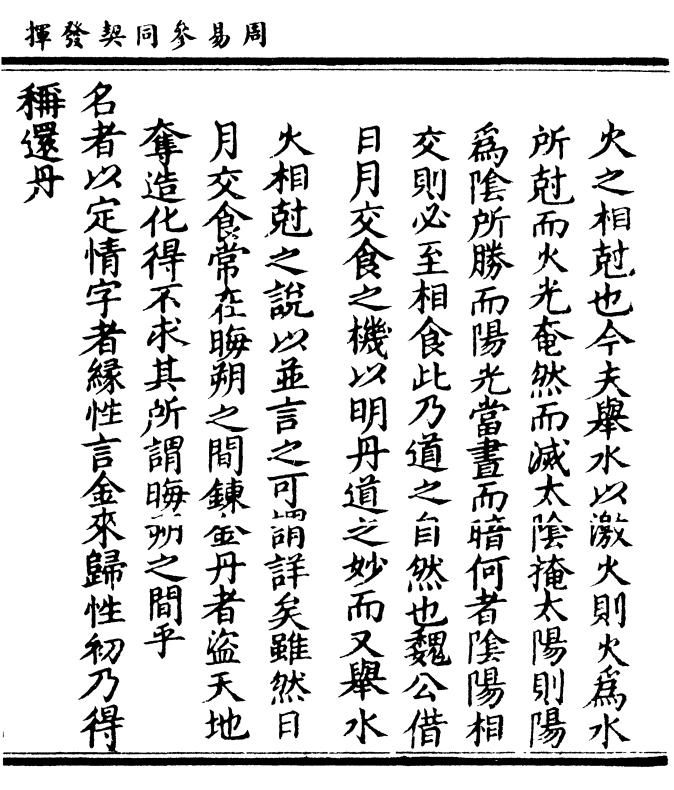 周易參同契發揮
火之相尅也今夫舉水以激火則火爲水
所尅而火光奄然而滅太陰掩太陽則陽
爲陰所勝而陽光當晝而暗何者陰陽相
交則必至相食此乃道之自然也魏公借
日月交食之機以明丹道之妙而又舉水
火相尅之說以並言之可謂詳矣雖然日
月交食常在晦朔之間鍊金丹者盜天地
奪造化得不求其所謂晦朔之間乎
名者以定情字者緣性言金來歸性初乃得
稱還丹